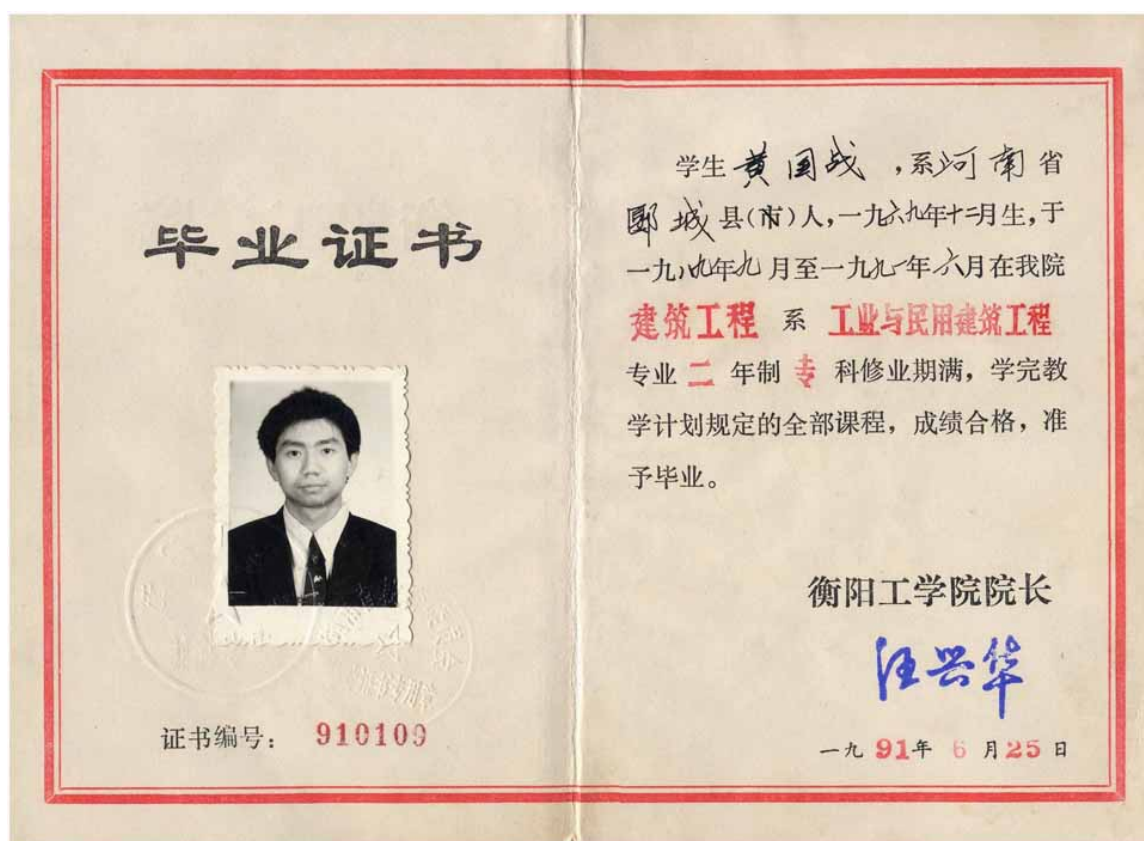 毕业证书
证书编号： 910109
学生 黄国战 ，系河南省
郾城县(市)人，一九六九年十二月生，于
一九八九年九月至一九九一年六月在我院
建筑工程 系 工业与民用建筑工程
专业 二 年制 专 科修业期满，学完教
学计划规定的全部课程，成绩合格，准
予毕业。
衡阳工学院院长
汪兴华
一九91年 6 月25日